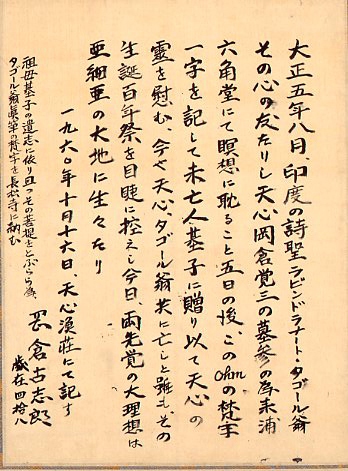 大正五年八月、印度の詩聖ラビンドラナート・タゴール翁
その心の友たりし天心岡倉覚三の墓参の為来浦
六角堂にて瞑想に耽ること五日の後、このohmの梵字
一字を記して未亡人基子に贈り以て天心の
霊を慰む、今や天心、タゴール翁共に亡しと雖も、その
生誕百年祭を目睫に控えし今日、両先覚の大理想は
亜細亜の大地に生々たり
一九六〇年十月十六日、天心漁荘にて記す
祖母基子の遺志に依り且つその菩提をとぶらう為
タゴール翁眞筆の梵字を長松寺に納む
岡倉古志郎
歳在四拾八